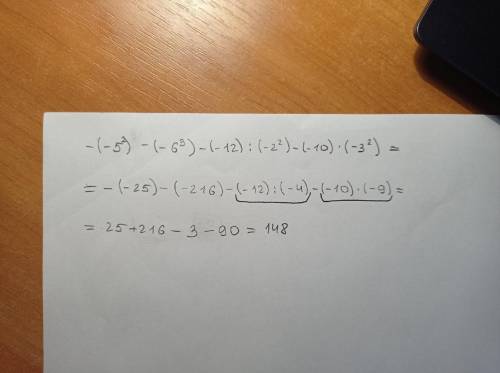 -(-5²) - (-6³) - (-12) : (-2²) - (-10) · (-3²) =
= -(-25) - (-216) - (-12) : (-4) - (-10) · (-9) =
= 25 + 216 - 3 - 90 = 148